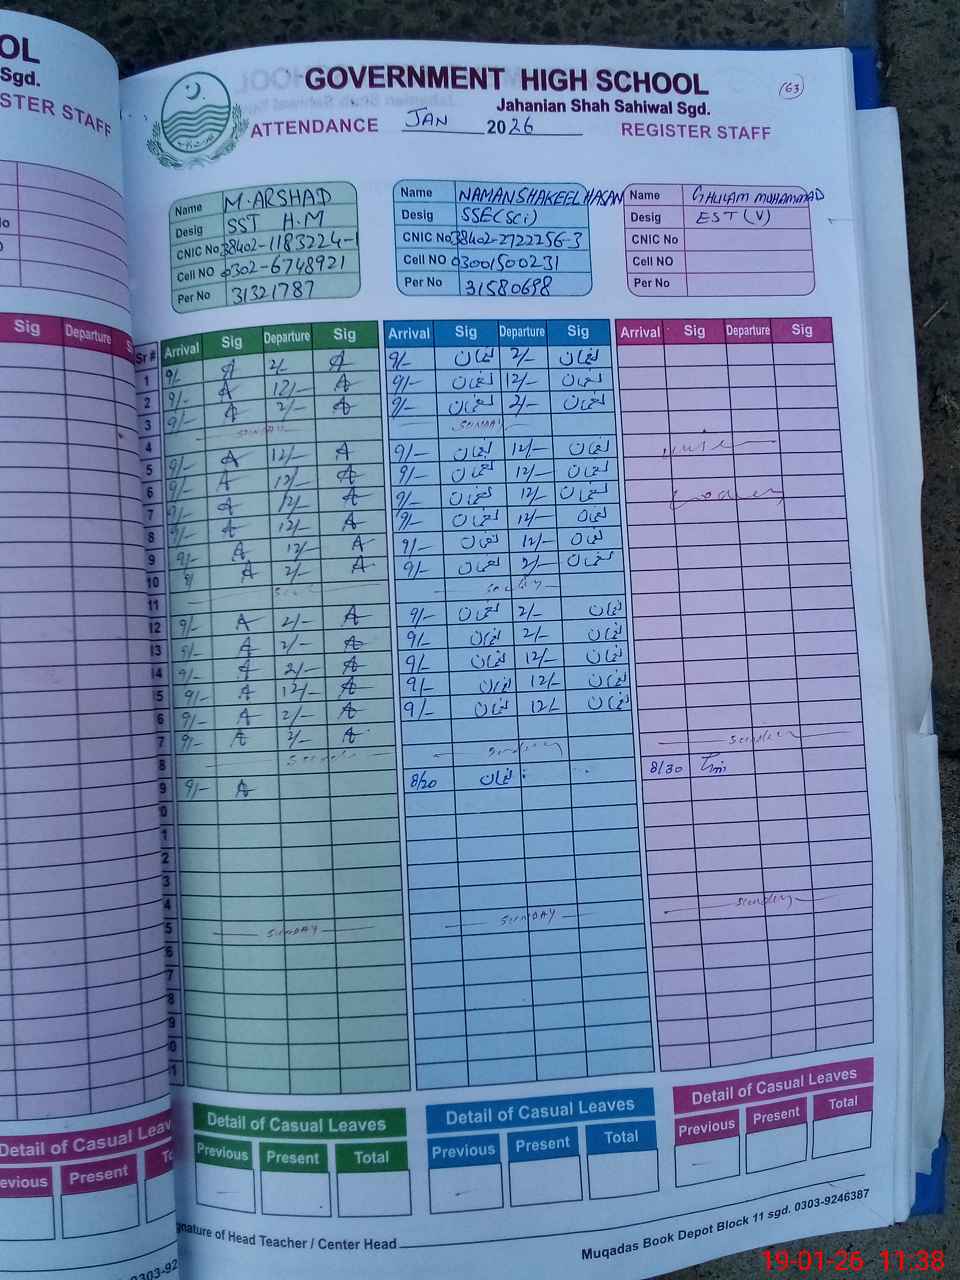 OL
Sgd.
STER STAFF
GOVERNMENT HIGH SCHOOL
63
Jahanian Shah Sahiwal Sgd.
ATTENDANCE JAN 2026 REGISTER STAFF
Name M. ARSHAD
Desig SST H.M
CNIC No 38402-1183224-1
Cell NO 0302-6748921
Per No 31321787
Name NAMAN SHAKEEL HASAN
Desig SSE(Sci)
CNIC No 38402-2722256-3
Cell NO 03001500231
Per No 31580698
Name GHULAM MUHAMMAD
Desig EST (V)
CNIC No
Cell NO
Per No
Sig Departure S
Sr # Arrival Sig Departure Sig Arrival Sig Departure Sig Arrival Sig Departure Sig
1 9/- A 2/- A 9/- لغمان 2/- لغمان
2 9/- A 12/- A 9/- لغمان 12/- لغمان
3 9/- A 2/- A 9/- لغمان 2/- لغمان
4 SUNDAY SUNDAY
5 9/- A 12/- A 9/- لغمان 12/- لغمان
6 9/- A 12/- A 9/- لغمان 12/- لغمان
7 9/- A 12/- A 9/- لغمان 12/- لغمان
8 9/- A 12/- A 9/- لغمان 12/- لغمان
9 9/- A 12/- A 9/- لغمان 12/- لغمان
10 9/ A 2/- A 9/- لغمان 2/- لغمان
11 Sunday
12 9/- A 2/- A 9/- لغمان 2/- لغمان
13 9/- A 2/- A 9/- لغمان 2/- لغمان
14 9/- A 2/- A 9/- لغمان 12/- لغمان
5 9/- A 12/- A 9/- لغمان 12/- لغمان
6 9/- A 2/- A 9/- لغمان 12/- لغمان
7 9/- A 2/- A
8 Sunday Sunday Sunday
9 9/- A 8/20 لغمان 8/30
0
1
2
3
4
5 SUNDAY SUNDAY Sunday
6
7
8
9
0
1
Detail of Casual Leav
evious Present To
Detail of Casual Leaves
Previous Present Total
Detail of Casual Leaves
Previous Present Total
Detail of Casual Leaves
Previous Present Total
gnature of Head Teacher / Center Head
Muqadas Book Depot Block 11 sgd. 0303-9246387
0303-92
19-01-26 11:38